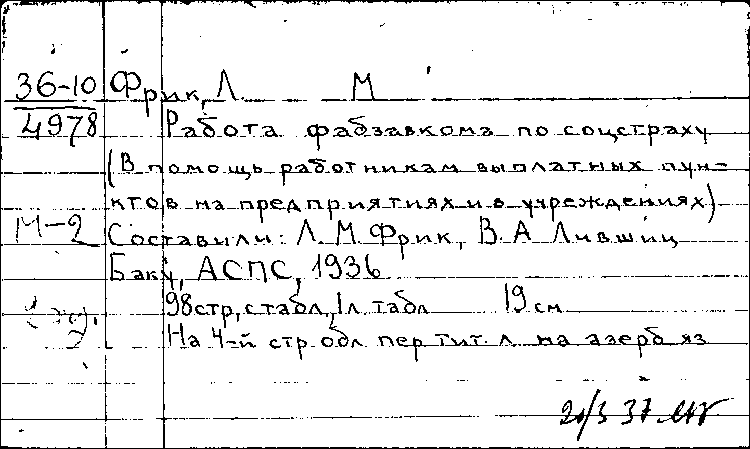 36-10 Фрик, Л. М
4978 Работа фабзавкома по соцстраху
(В помощь работникам выплатных пун-
ктов на предприятиях и в учреждениях)
М-2 Составили: Л. М. Фрик, В. А Лившиц
Баку, АСПС, 1936
98стр, с табл, 1л. табл 19 см
На 4-й стр обл пер тит. л на азерб яз